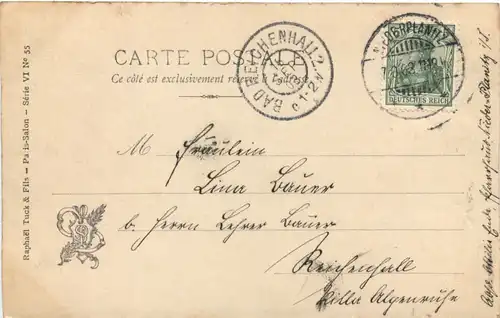 CARTE POSTALE
Ce côté est exclusivement réservé à l'adresse.
BAD REICHENHALL 2
1-2 N
NIEDERPLANITZ
DEUTSCHES REICH
Raphaël Tuck & Fils — Paris-Salon — Série VI Nº 55
Fräulein
Lina Bauer
b. Herrn Lehrer Bauer
Reichenhall
Villa Alpenruhe
Pfarrhaus Nieder-Planitz i/S.